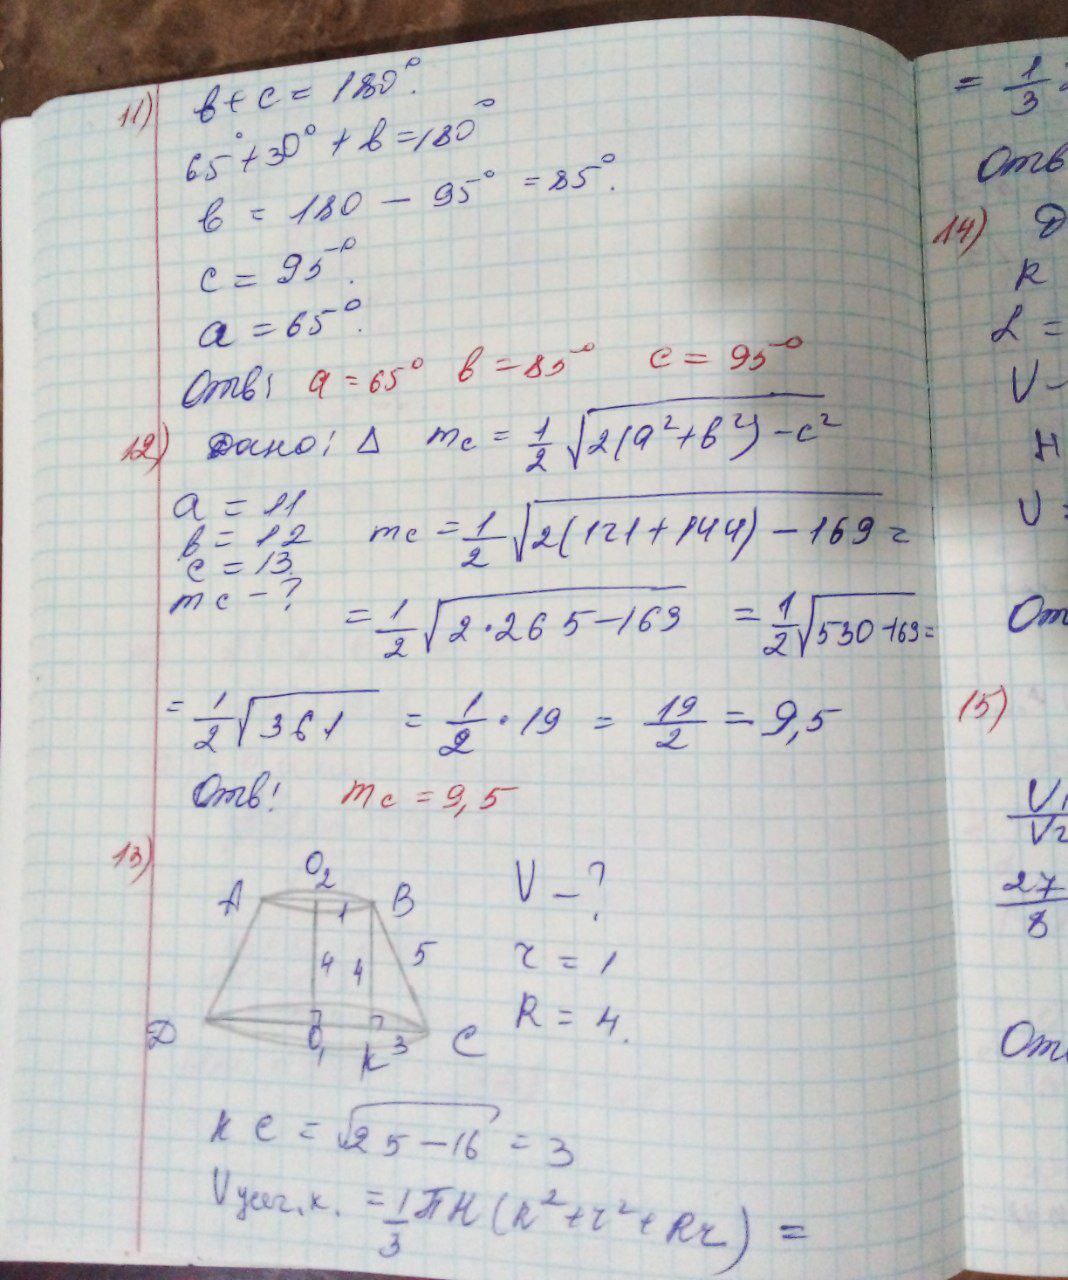 11) в + c = 180°.
65° + 30° + в = 180°
в = 180 - 95° = 85°.
c = 95°.
a = 65°.
Отв: a = 65° в = 85° c = 95°
12) Дано: Δ mc = 1/2 √2(a²+в²) - c²
a = 11
в = 12
c = 13
mc - ?
mc = 1/2 √2(121+144) - 169 =
= 1/2 √2·265-169 = 1/2 √530-169 =
= 1/2 √361 = 1/2 · 19 = 19/2 = 9,5
Отв: mc = 9,5
13)
O2
A B
1
4 4 5
Д O1 K 3 C
V - ?
r = 1
R = 4.
KC = √25-16 = 3
Vус.к. = 1/3 πH (R²+r²+Rr) =
= 1/3
Отв
14) Д
R
L =
V -
H
V =
От
15)
V1
V2
27
8
От